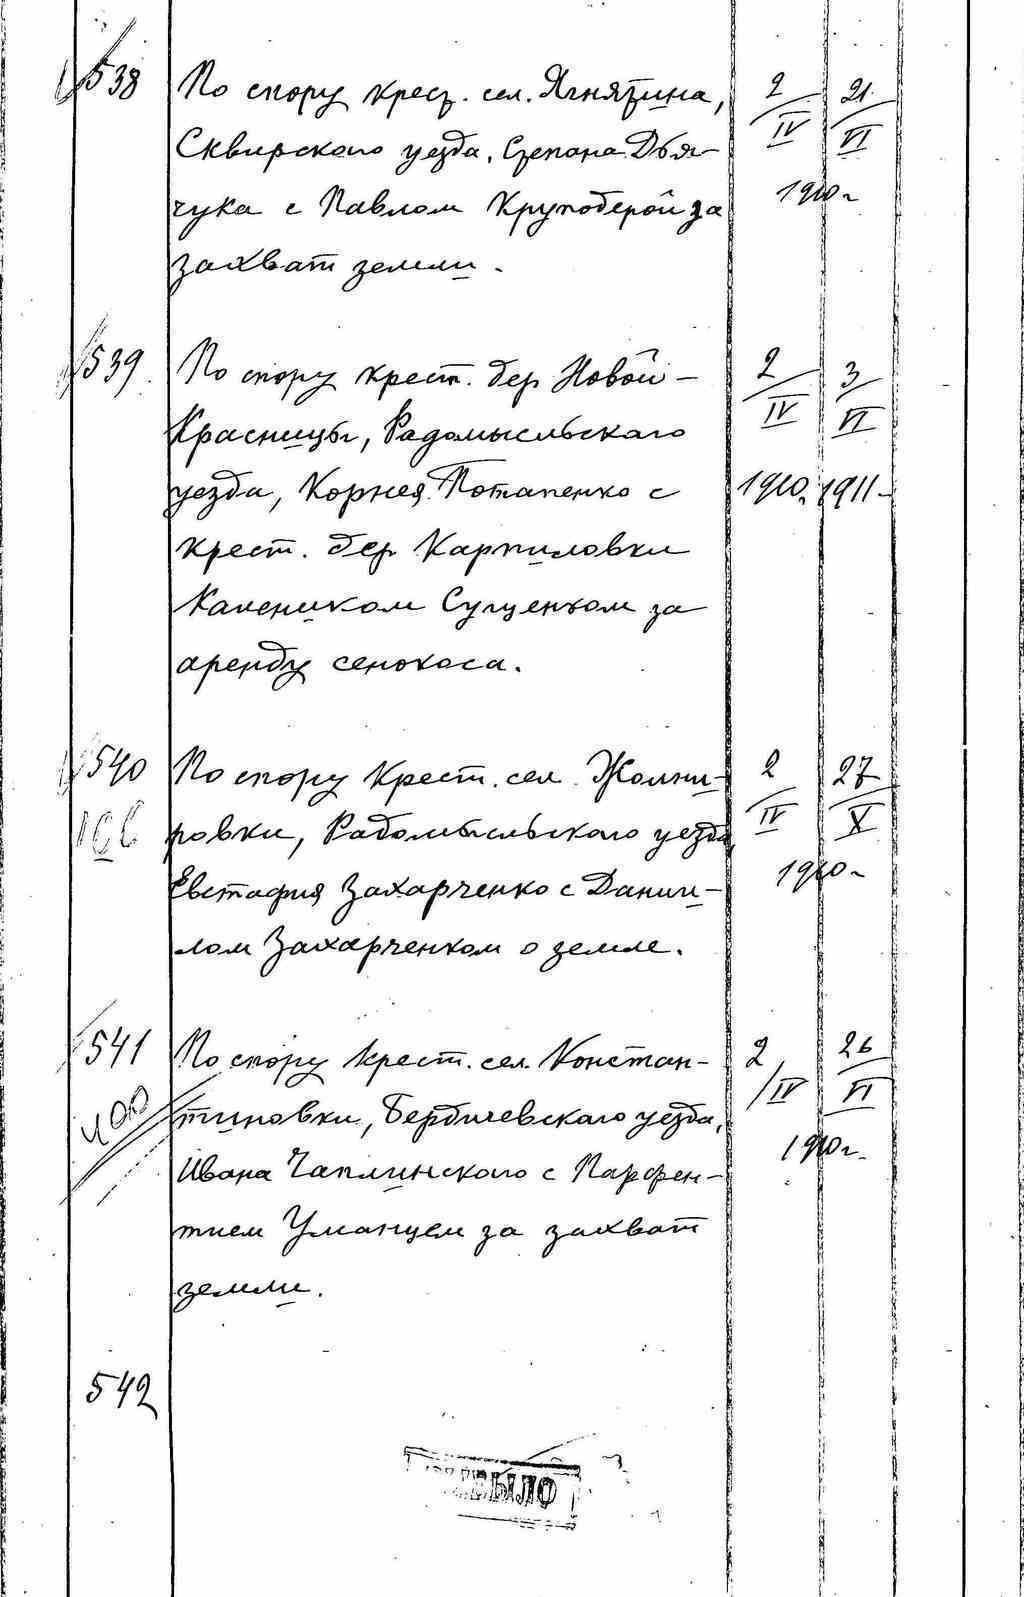 538 По спору крест. сел. Ягнятина, 2/IV 21/VI
Сквирского уезда, Степана Дья-
чука с Павлом Круподерой за 1910 г
захват земли.
539 По спору крест. дер. Новой- 2/IV 3/VI
Красницы, Радомысльского
уезда, Корнея Потапенко с 1910 г. 1911-
крест. дер. Карпиловки
Калеником Сущенком за
аренду сенокоса.
540 По спору крест. сел. Жолни- 2/IV 27/X
166 ровки, Радомысльского уезда,
Евстафия Захарченко с Дании- 1910 г
лом Захарченком о земле.
541 По спору крест. сел. Констан- 2/IV 26/VI
400 тиновки, Бердичевского уезда,
Ивана Чаплинского с Парфен- 1910 г.
тием Уманцем за захват
земли.
542
ВЫБЫЛО